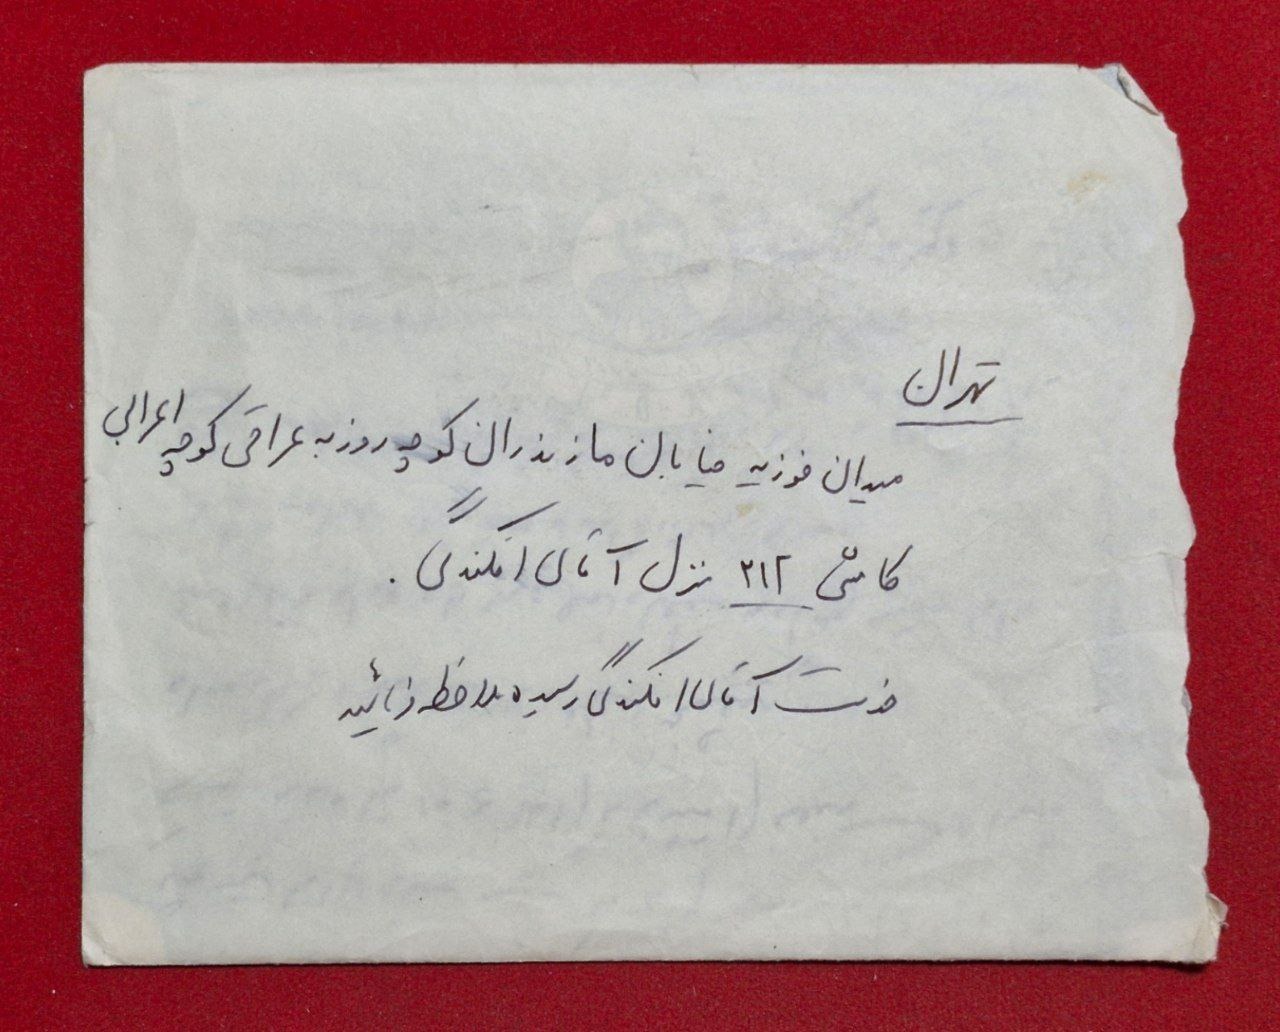 تهران
میدان فوزیه خیابان مازندران کوچه روزبه عراقی کوچه اعرابی
کاشی ۲۱۲ منزل آقای افکندگی .
خدمت آقای افکندگی رسیده ملاحظه فرمائید